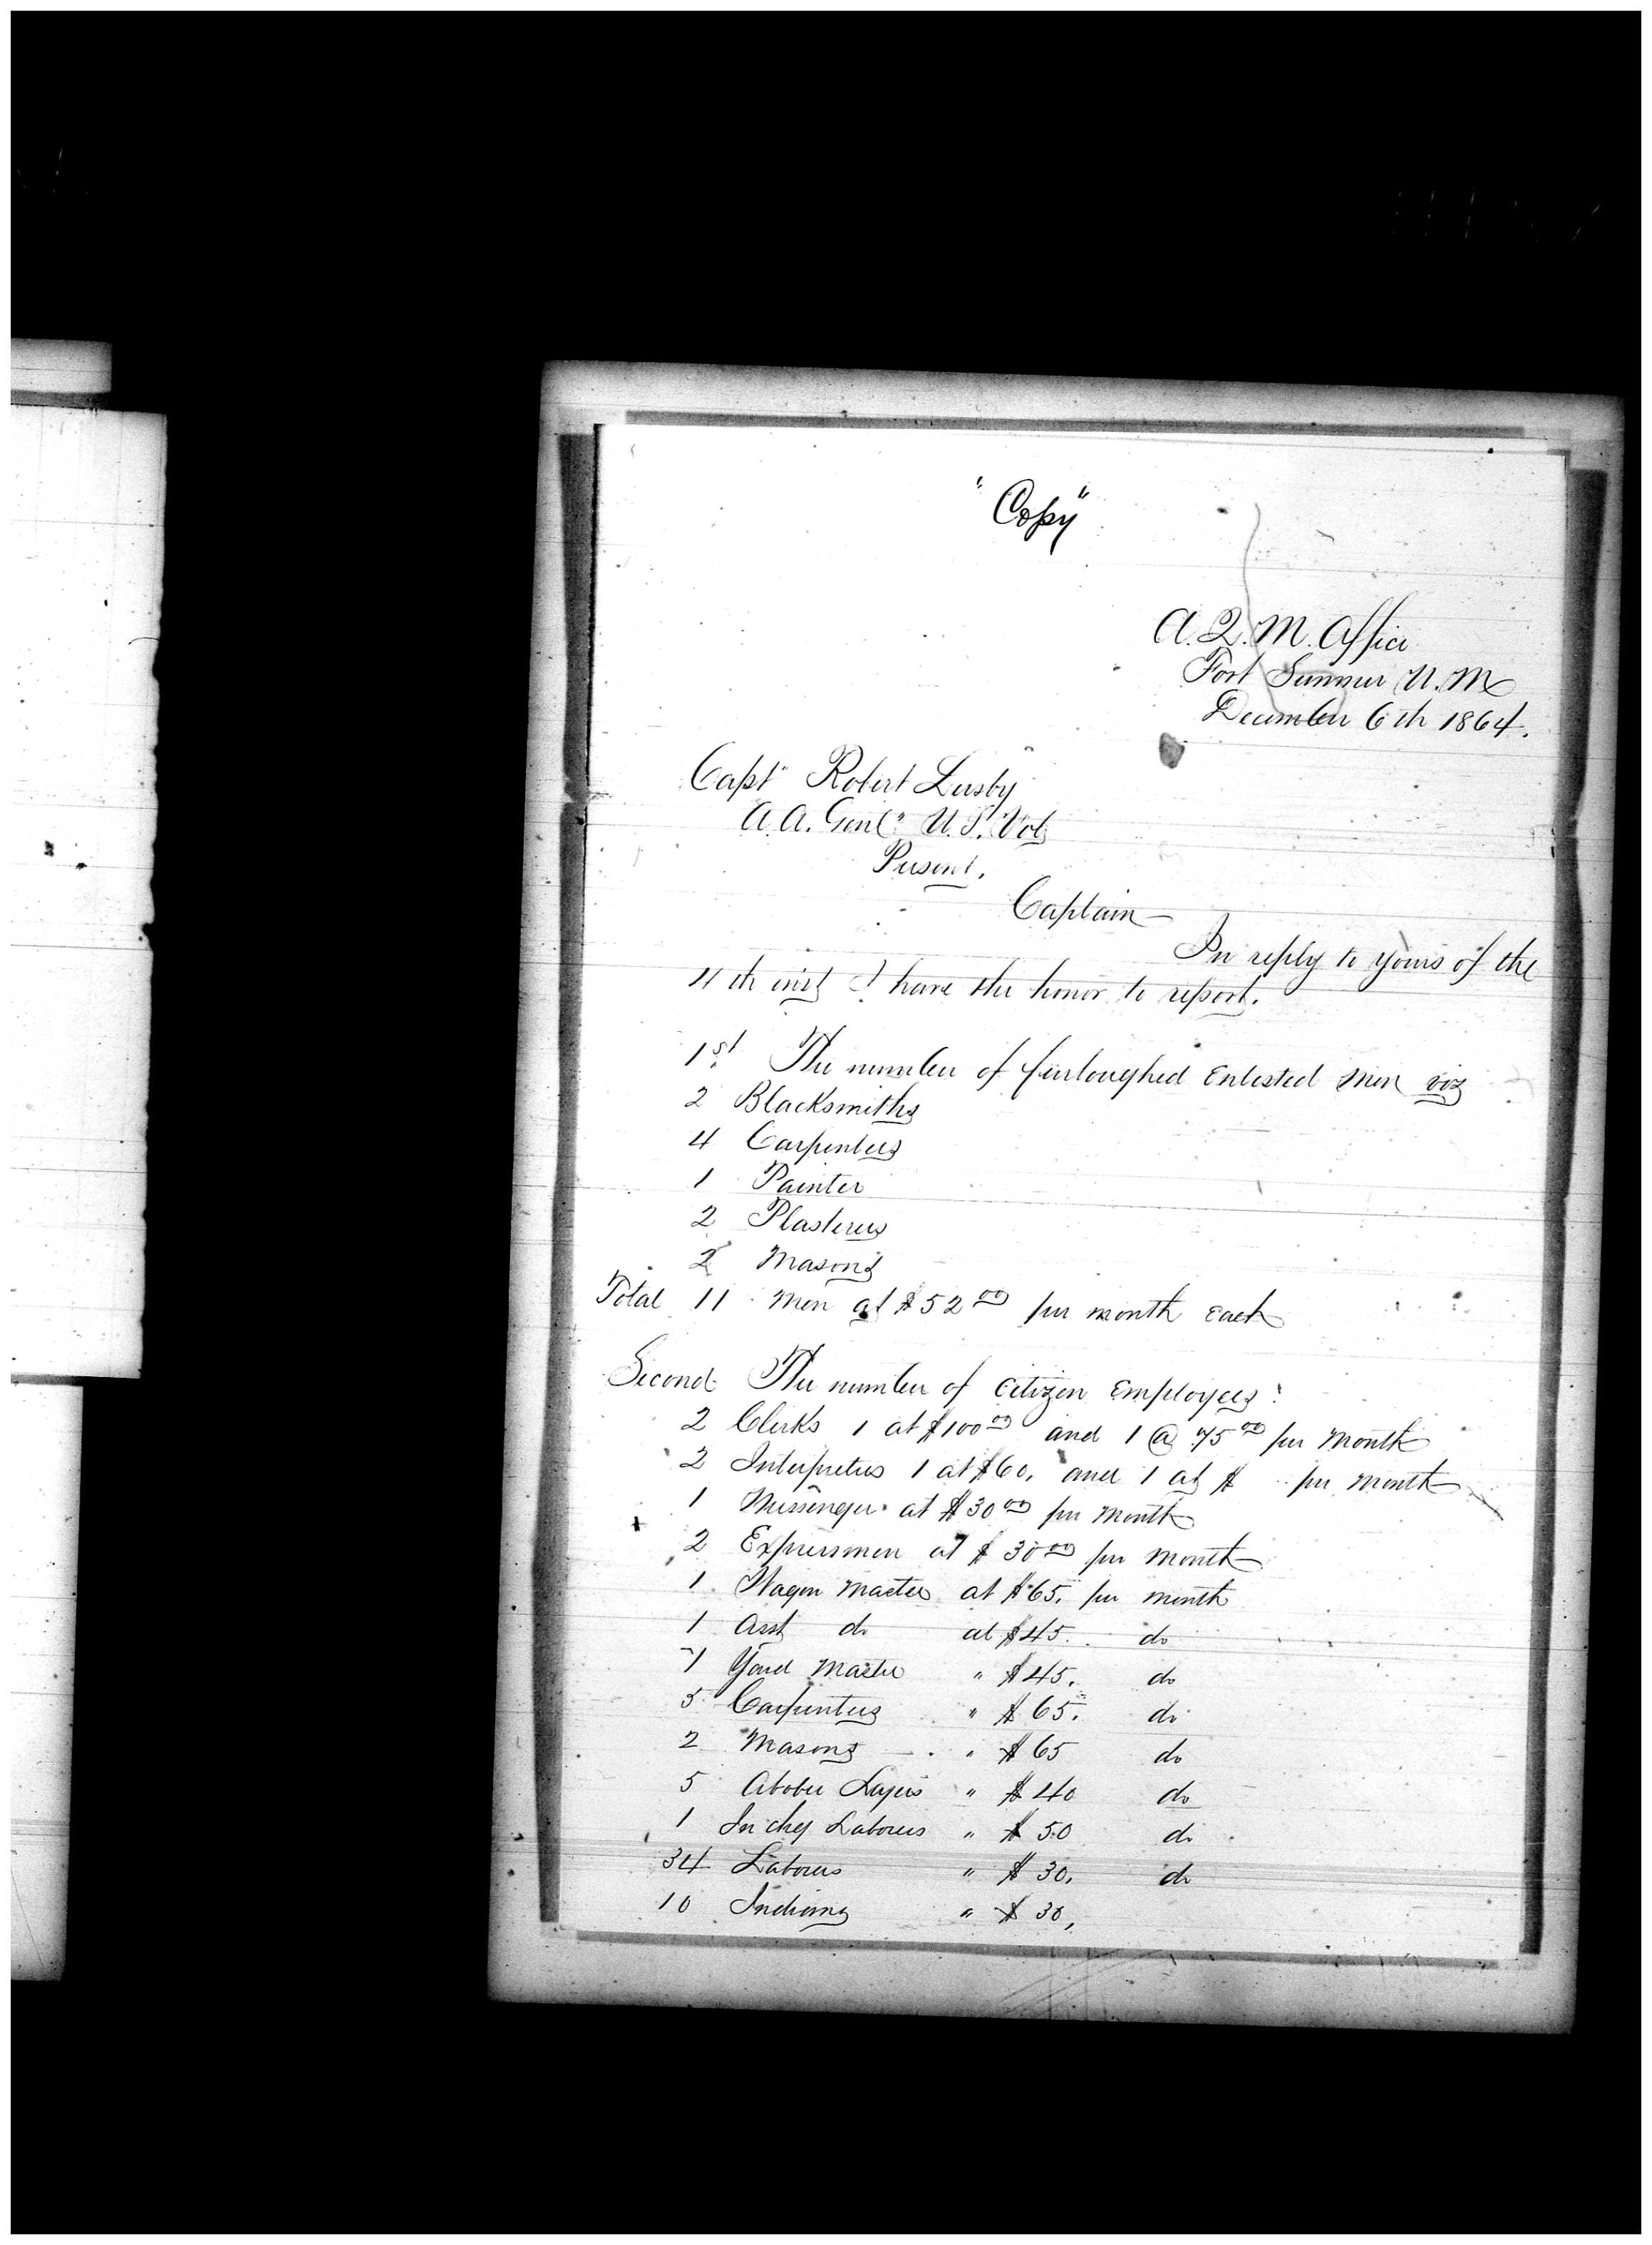 "Copy"
A. Q. M. Office
Fort Sumner N. M.
December 6th 1864.
Capt" Robert Lusby
A. A. Genl" U. S. Vols
Present.
Captain
In reply to yours of the
4th inst I have the honor to report.
1st. The number of furloughed Enlisted men viz
2 Blacksmiths
4 Carpenters
1 Painter
2 Plasterers
2 Masons
Total 11 men at $52 00 per month each
Second The number of Citizen Employees:
2 Clerks 1 at $100 00 and 1 @ 75 00 per month
2 Interpreters 1 at $60. and 1 at $ per month
1 Messenger at $30 00 per month
2 Expressmen at $30 00 per month
1 Wagon Master at $65. per month
1 Asst do at $45. do
1 Yard Master " $45. do
5 Carpenters " $65. do
2 Masons " $65 do
5 Adobe Layers " $40 do
1 In chg Laborers " $50 do
34 Laborers " $30. do
10 Indians " $30,